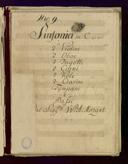 Nro 9
Sinfonia in C
2 Violini
2 Oboe
2 Fagotti
2 Corni
2 Viole
2 Clarini
Tympani
Basso
Del Sigre W. A. Mozart